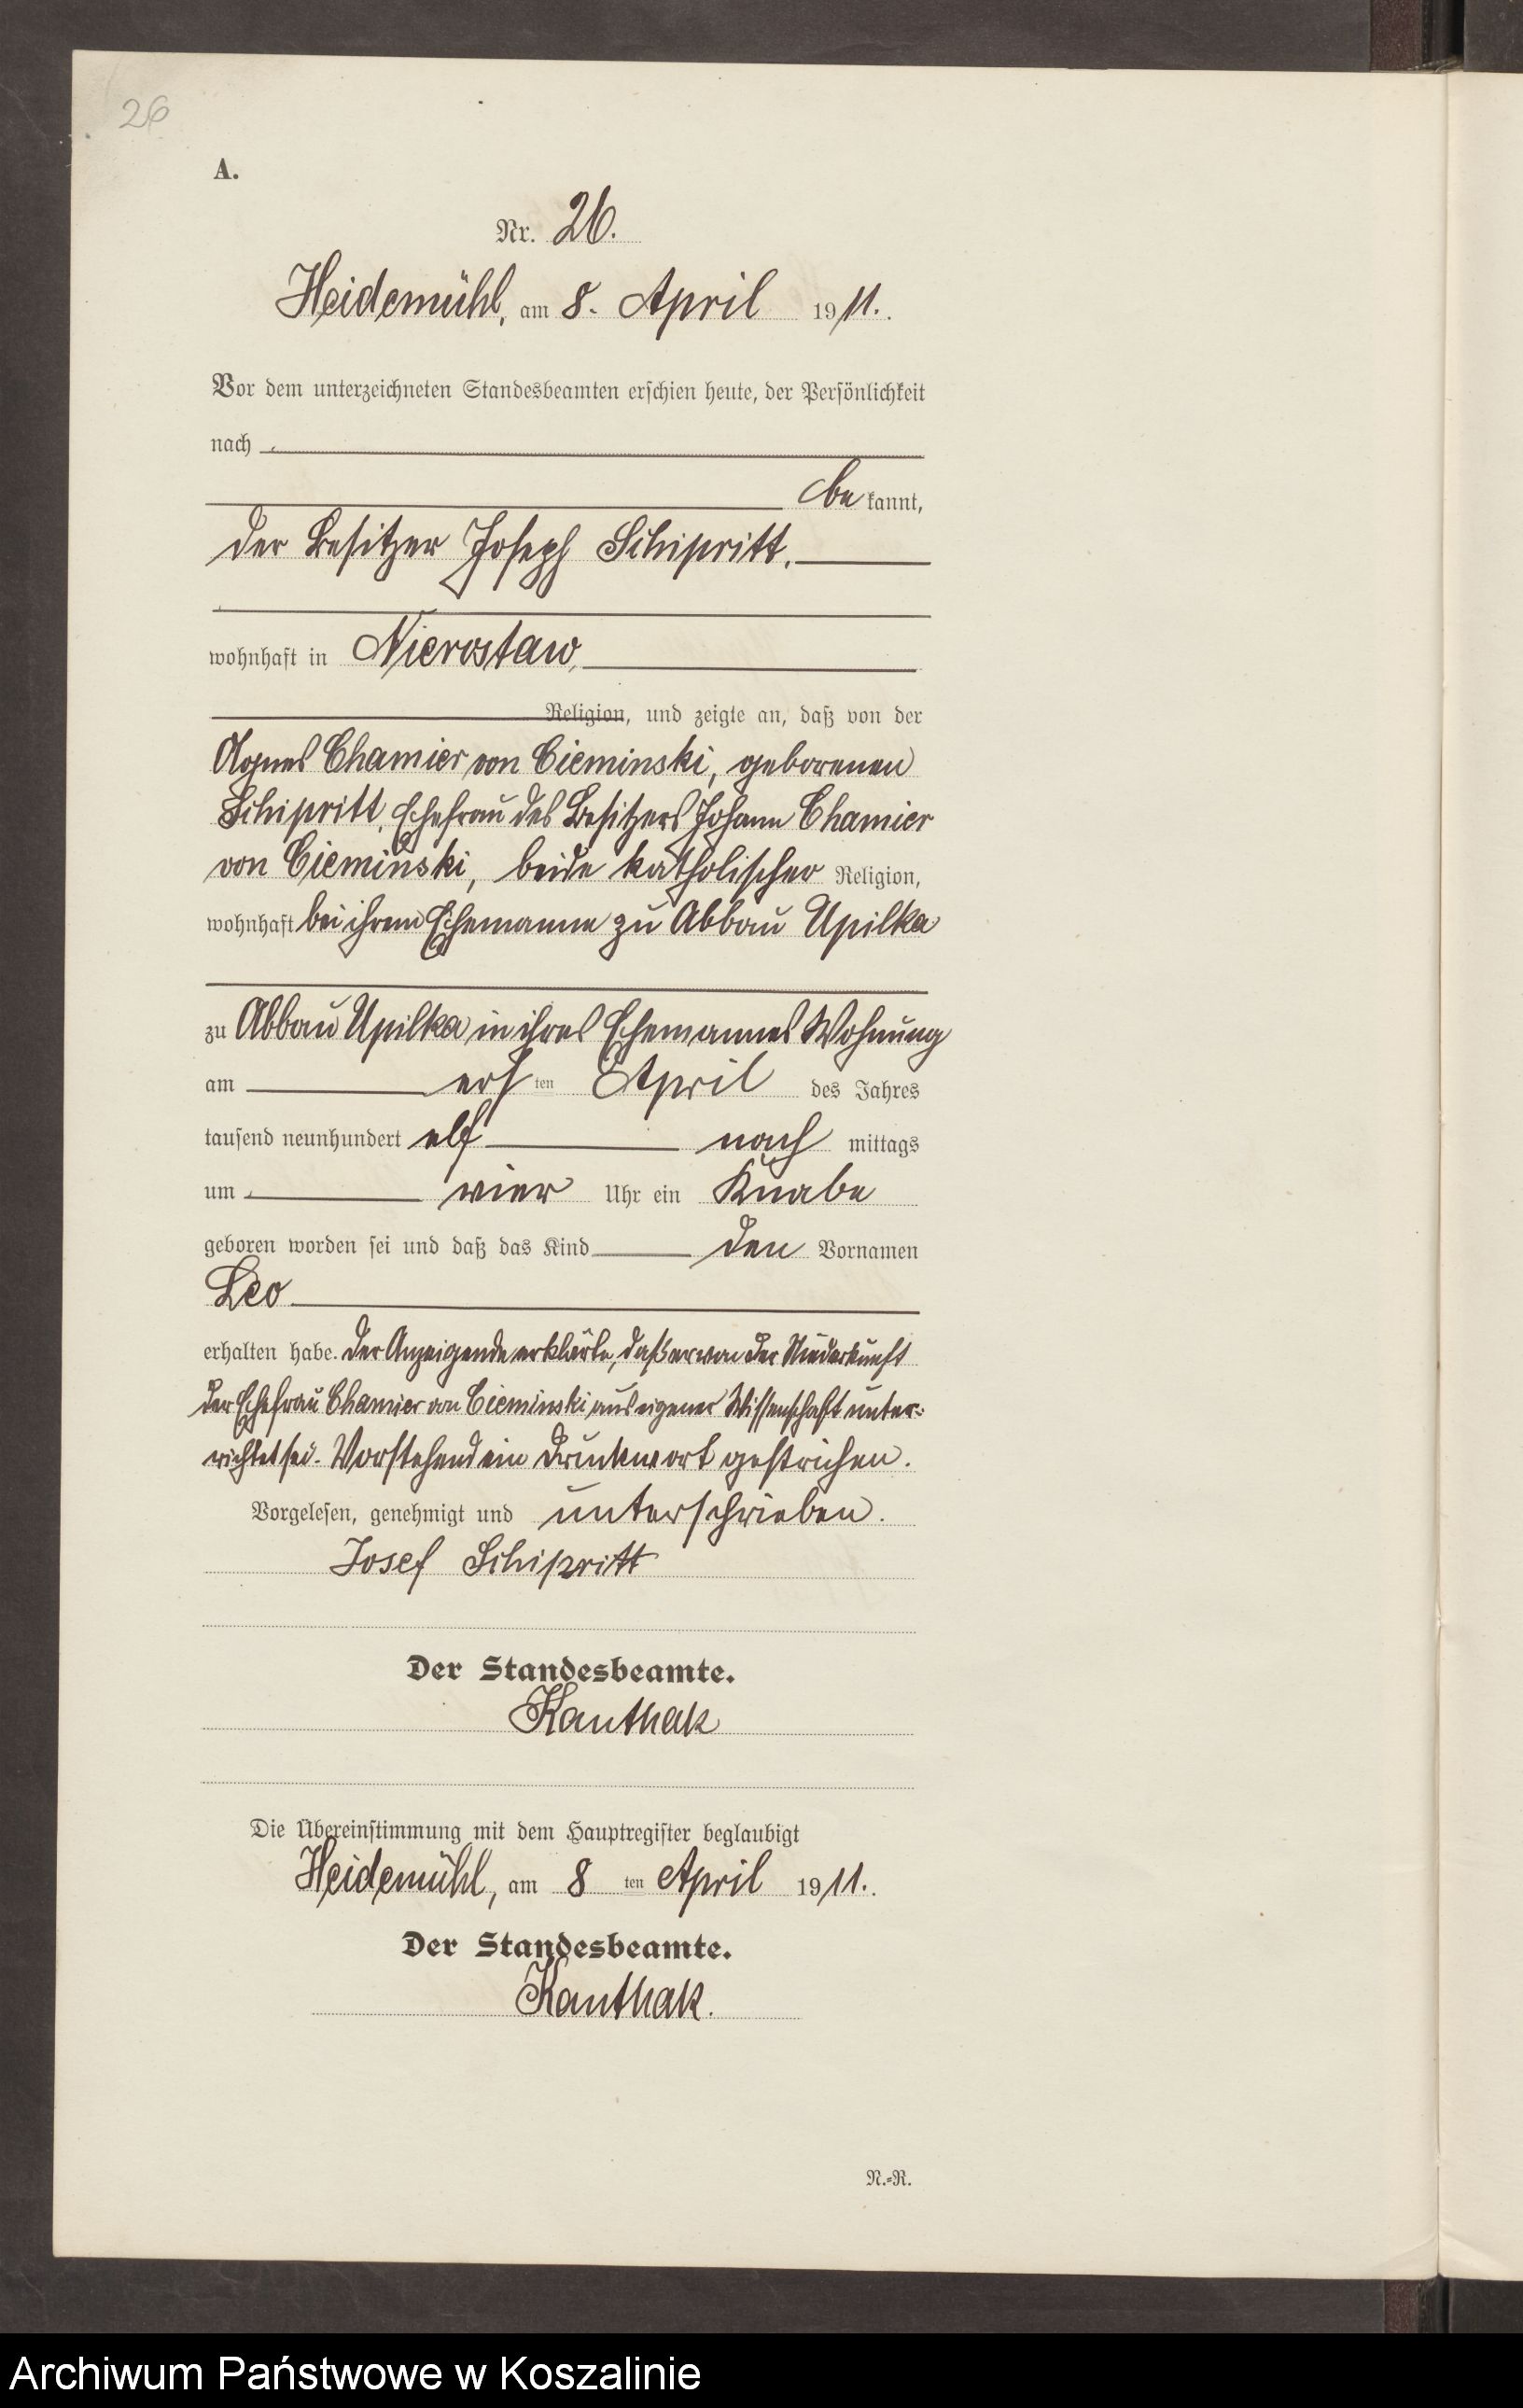 26
A.
Nr. 26.
Heidemühl, am 8. April 1911.
Vor dem unterzeichneten Standesbeamten erschien heute, der Persönlichkeit
nach
be kannt,
der Besitzer Joseph Schipritt,
wohnhaft in Nierostaw,
Religion, und zeigte an, daß von der
Agnes Chamier von Cieminski, geborenen
Schipritt, Ehefrau des Besitzers Johann Chamier
von Cieminski, beide katholischer Religion,
wohnhaft bei ihrem Ehemanne zu Abbau Upilka
zu Abbau Upilka in ihres Ehemannes Wohnung
am ersten April des Jahres
tausend neunhundert elf nach mittags
um vier Uhr ein Knabe
geboren worden sei und daß das Kind den Vornamen
Leo
erhalten habe. Der Anzeigende erklärte, daß er von der Niederkunft
der Ehefrau Chamier von Cieminski aus eigener Wissenschaft unter-
richtet sei. Vorstehend ein Druckwort gestrichen.
Vorgelesen, genehmigt und unterschrieben.
Josef Schipritt
Der Standesbeamte.
Kanthak
Die Übereinstimmung mit dem Hauptregister beglaubigt
Heidemühl, am 8 ten April 1911.
Der Standesbeamte.
Kanthak.
N.-R.
Archiwum Państwowe w Koszalinie